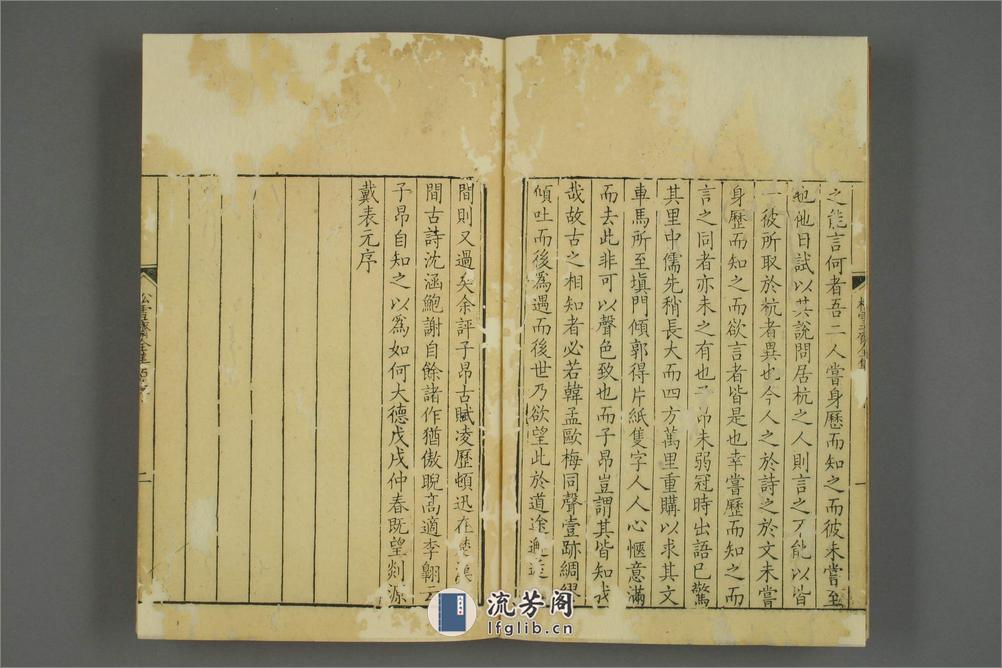 之能言何者吾二人嘗身歷而知之而彼未嘗至
也他日試以其說問居杭之人則言之不能以皆
一彼所取於杭者異也今人之於詩之於文未嘗
身歷而知之而欲言者皆是也幸嘗歷而知之而
言之同者亦未之有也子昂未弱冠時出語已驚
其里中儒先稍長大而四方萬里重購以求其文
車馬所至填門傾郭得片紙隻字人人心愜意滿
而去此非可以聲色致也而子昂豈謂其皆知
哉故古之相知者必若韓孟歐梅同聲壹跡綢繆
傾吐而後爲遇而後世乃欲望此於道途邂逅
間則又過矣余評子昂古賦凌歷頓迅在楚漢
間古詩沈涵鮑謝自餘諸作猶傲睨高適李翺云
子昂自知之以爲如何大德戊戌仲春既望剡源
戴表元序
松雪齋全集
二
松雪齋全集
流芳阁
lfglib.cn